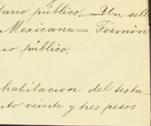 tario público. Un sell
Mexicana — Fermin
io público.
habitacion del testa-
to veinte y tres pesos